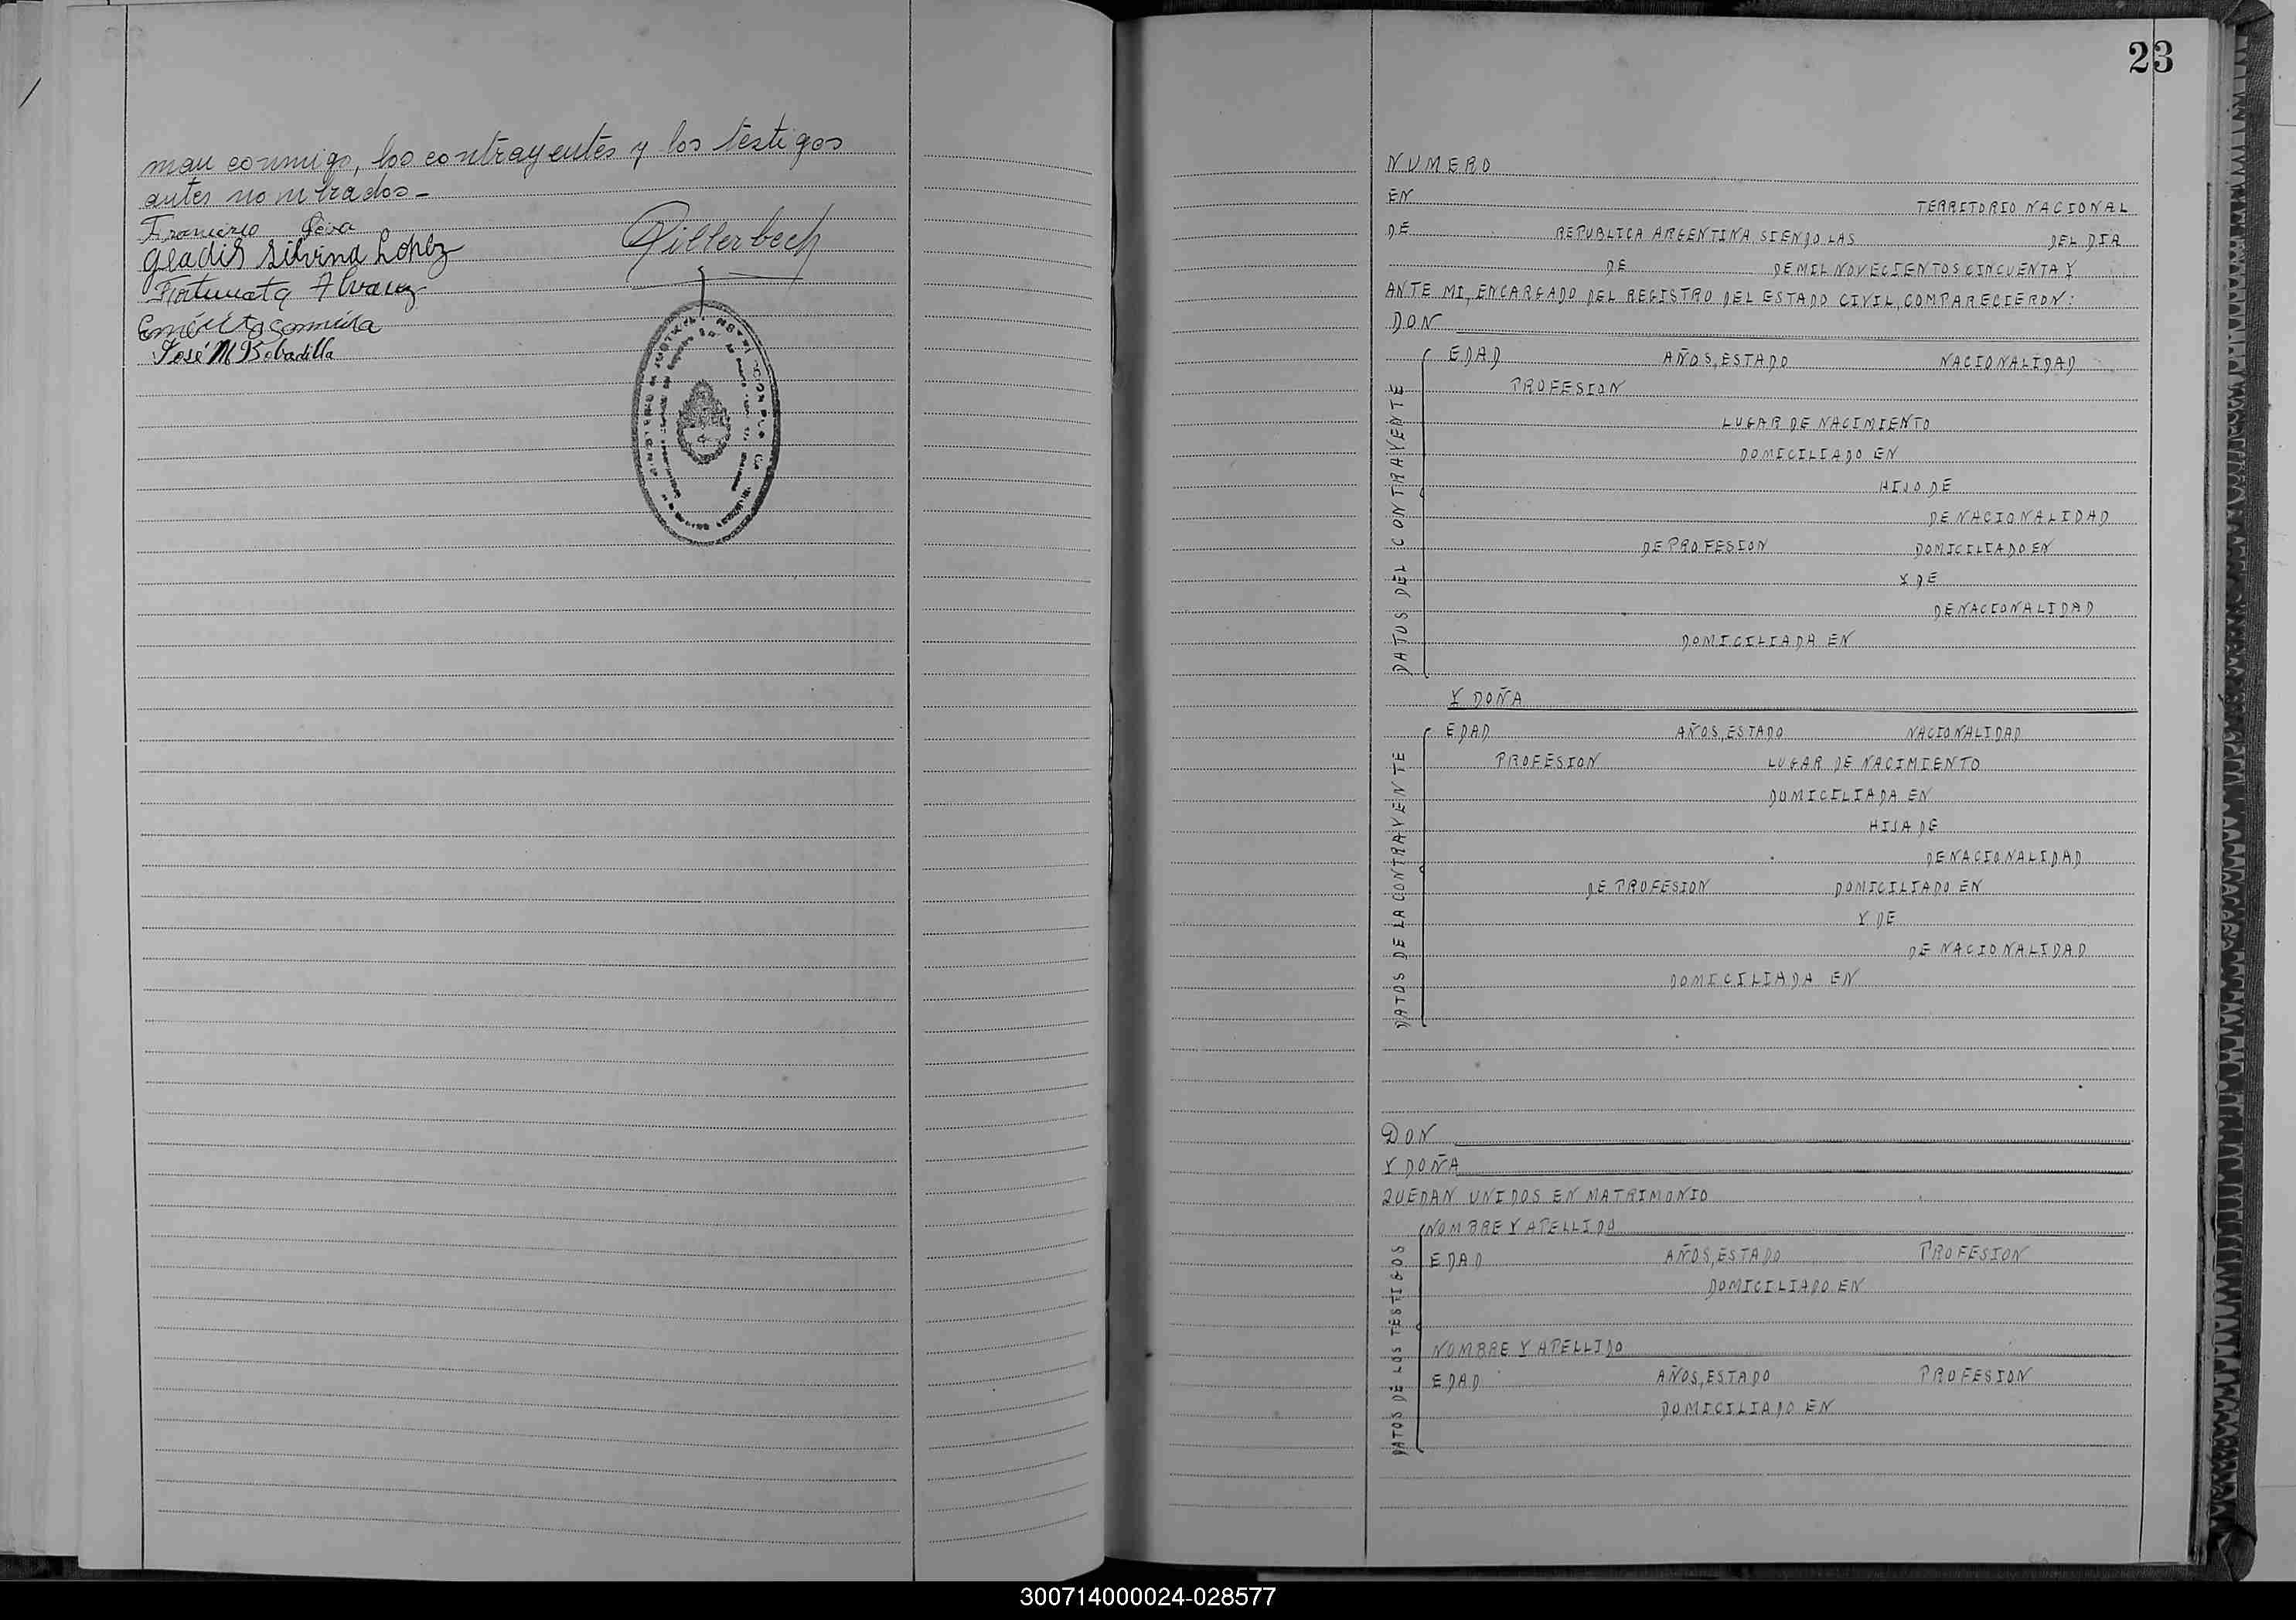 man conmigo, los contrayentes y los testigos
antes nombrados-
Francisco
Gladis Silvina Lopez
Fortunata Alvarez
José M Bobadilla
23
NUMERO
EN
TERRITORIO NACIONAL
DE REPUBLICA ARGENTINA SIENDO LAS DEL DIA
DE DE MIL NOVECIENTOS CINCUENTA Y
ANTE MI, ENCARGADO DEL REGISTRO DEL ESTADO CIVIL, COMPARECIERON:
DON
DATOS DEL CONTRAYENTE
EDAD AÑOS, ESTADO NACIONALIDAD
PROFESION
LUGAR DE NACIMIENTO
DOMICILIADO EN
HIJO DE
DE NACIONALIDAD
DE PROFESION DOMICILIADO EN
Y DE
DE NACIONALIDAD
DOMICILIADA EN
Y DOÑA
DATOS DE LA CONTRAYENTE
EDAD AÑOS, ESTADO NACIONALIDAD
PROFESION LUGAR DE NACIMIENTO
DOMICILIADA EN
HIJA DE
DE NACIONALIDAD
DE PROFESION DOMICILIADO EN
Y DE
DE NACIONALIDAD
DOMICILIADA EN
DON
Y DOÑA
QUEDAN UNIDOS EN MATRIMONIO
DATOS DE LOS TESTIGOS
NOMBRE Y APELLIDO
EDAD AÑOS, ESTADO PROFESION
DOMICILIADO EN
NOMBRE Y APELLIDO
EDAD AÑOS, ESTADO PROFESION
DOMICILIADO EN
300714000024-028577